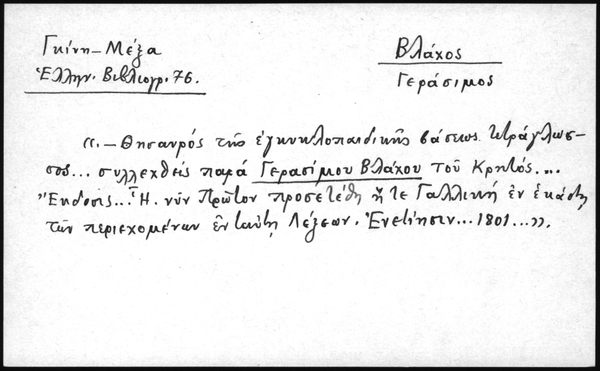 Γκίνη-Μέξα
Ἑλλην. Βιβλιογρ. 76.
Βλάχος
Γεράσιμος
«.- Θησαυρός τῆς ἐγκυκλοπαιδικῆς βάσεως τετράγλωσ-
σος... συλλεχθείς παρά Γερασίμου Βλάχου τοῦ Κρητός....
Ἔκδοσις... Ἧ νῦν Πρῶτον προσετέθη ἥ τε Γαλλική ἐν ἑκάστῃ
τῶν περιεχομένων ἐν ταύτῃ λέξεων. Ἐνετίησιν... 1801...».